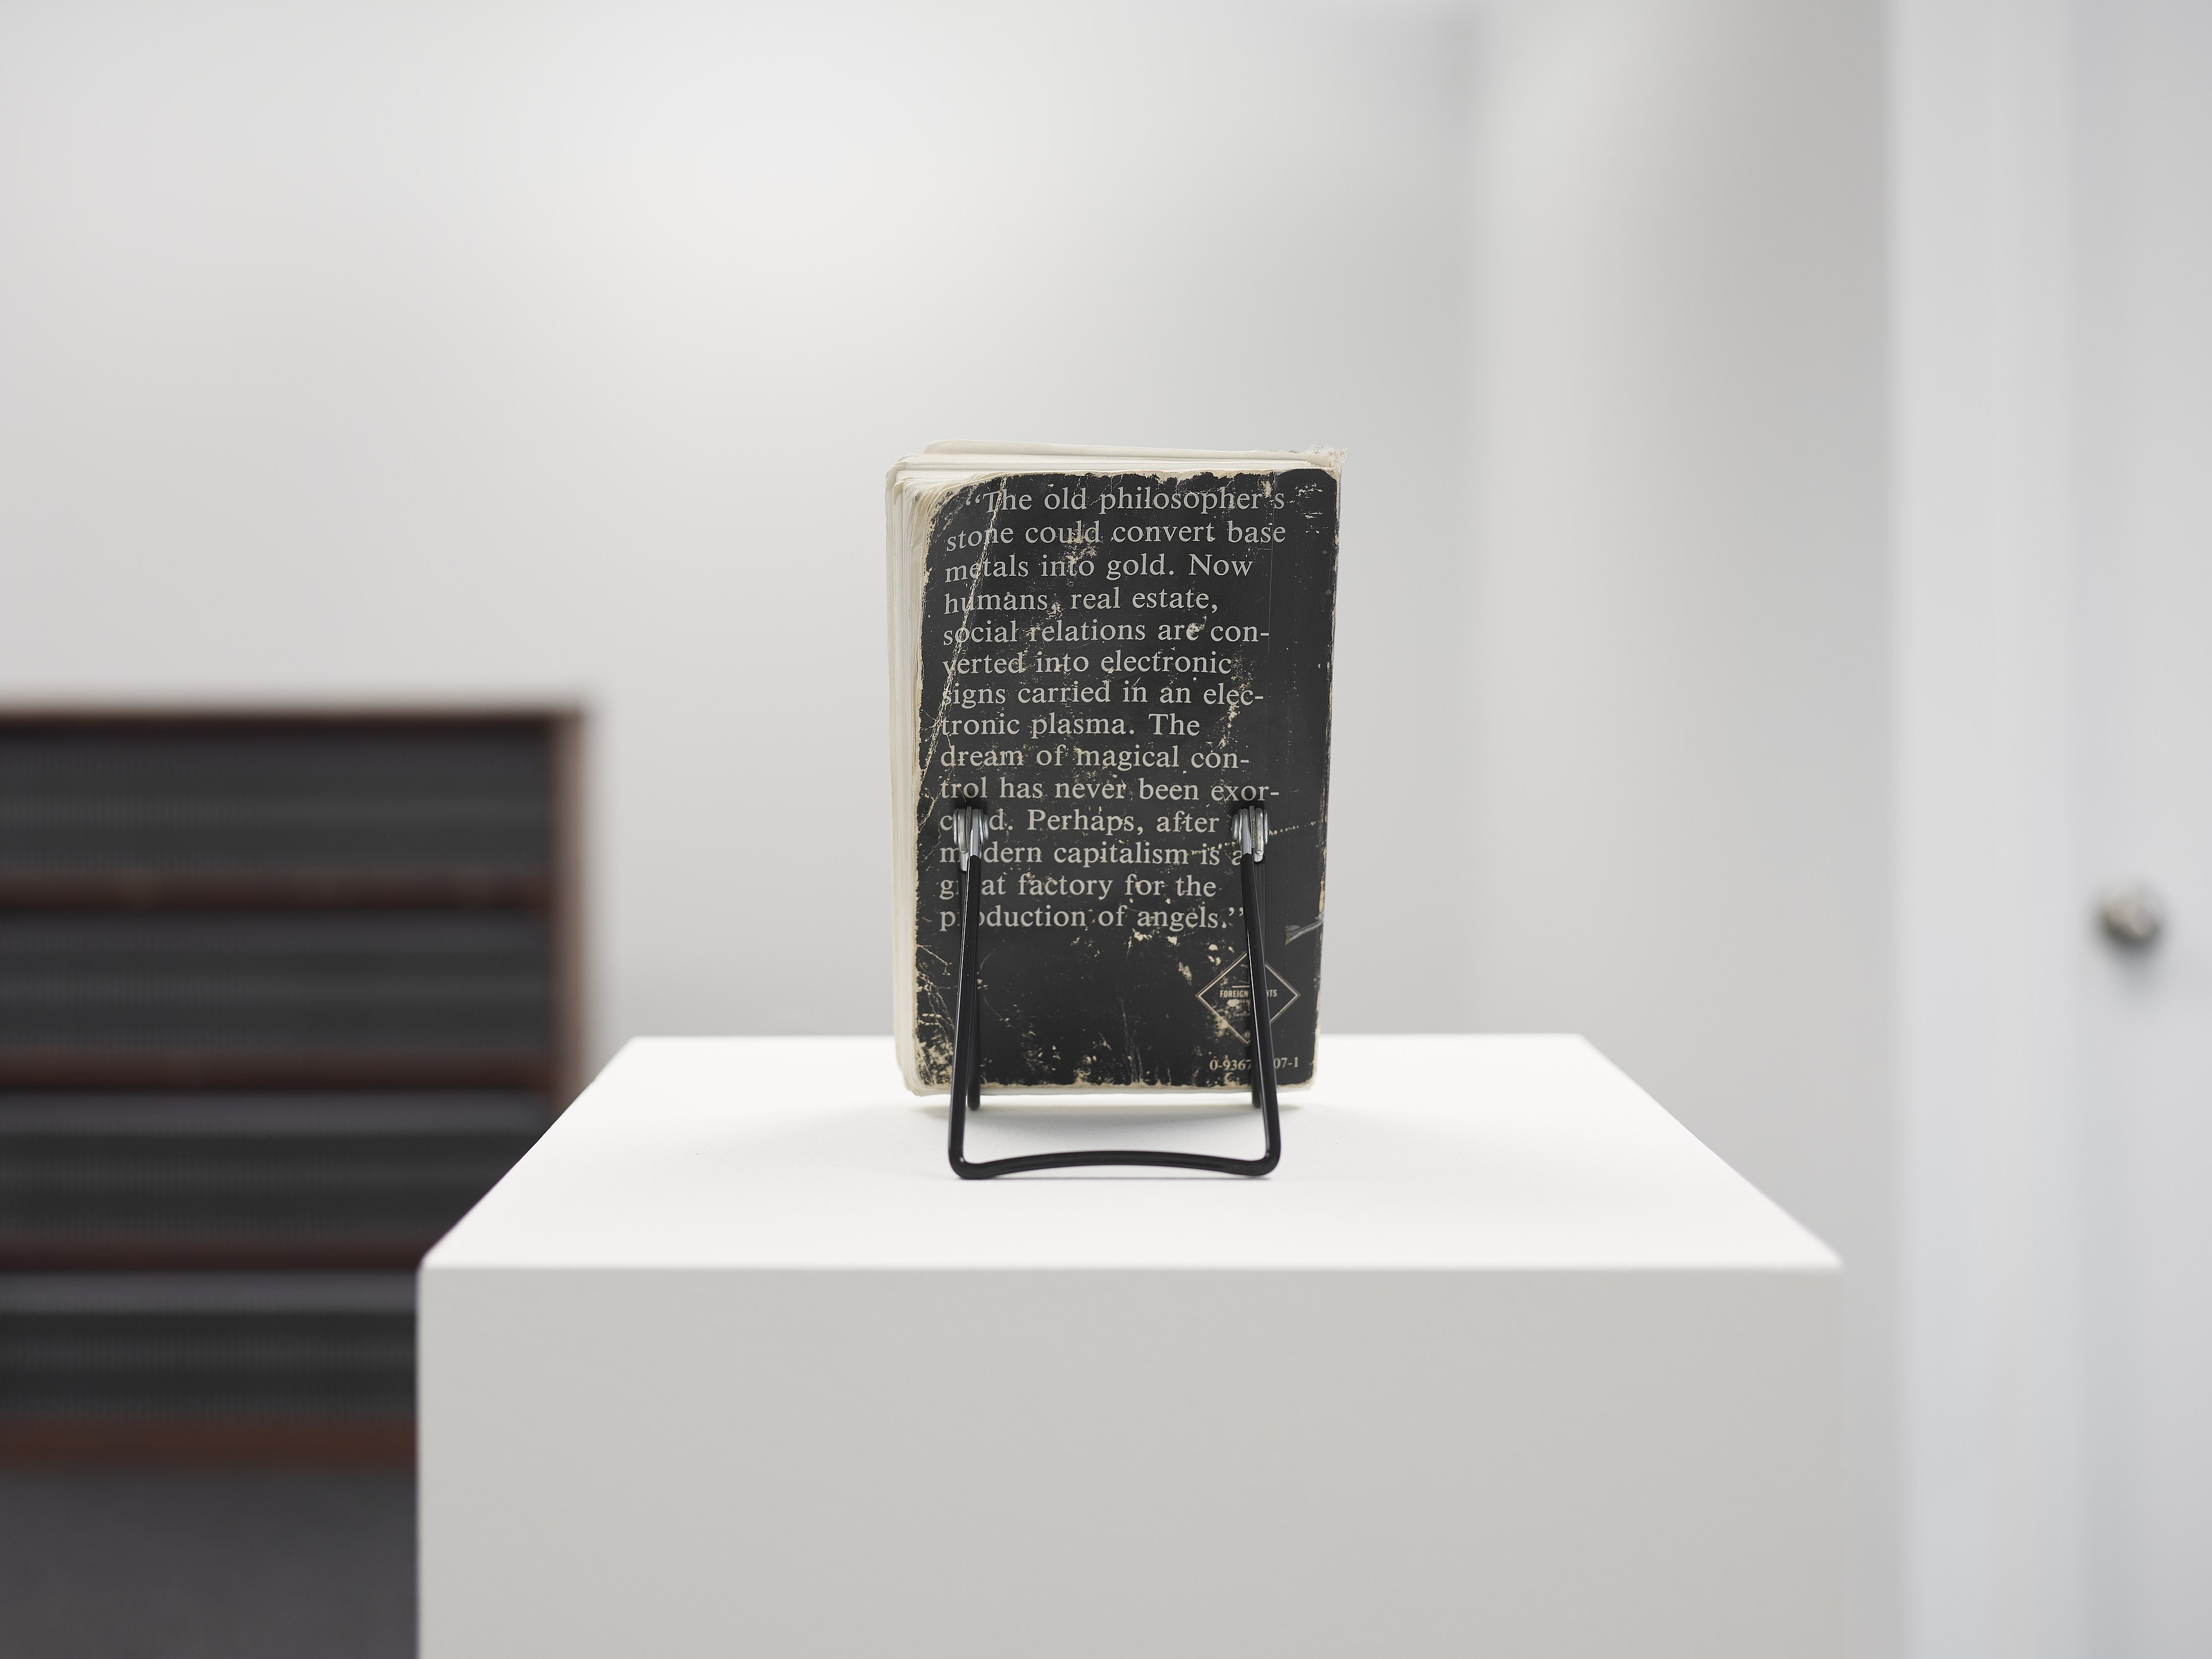 “The old philosopher's
stone could convert base
metals into gold. Now
humans, real estate,
social relations are con-
verted into electronic
signs carried in an elec-
tronic plasma. The
dream of magical con-
trol has never been exor-
c d. Perhaps, after
m dern capitalism is a
g at factory for the
p oduction of angels.”
FOREIGN TS
0-936 07-1